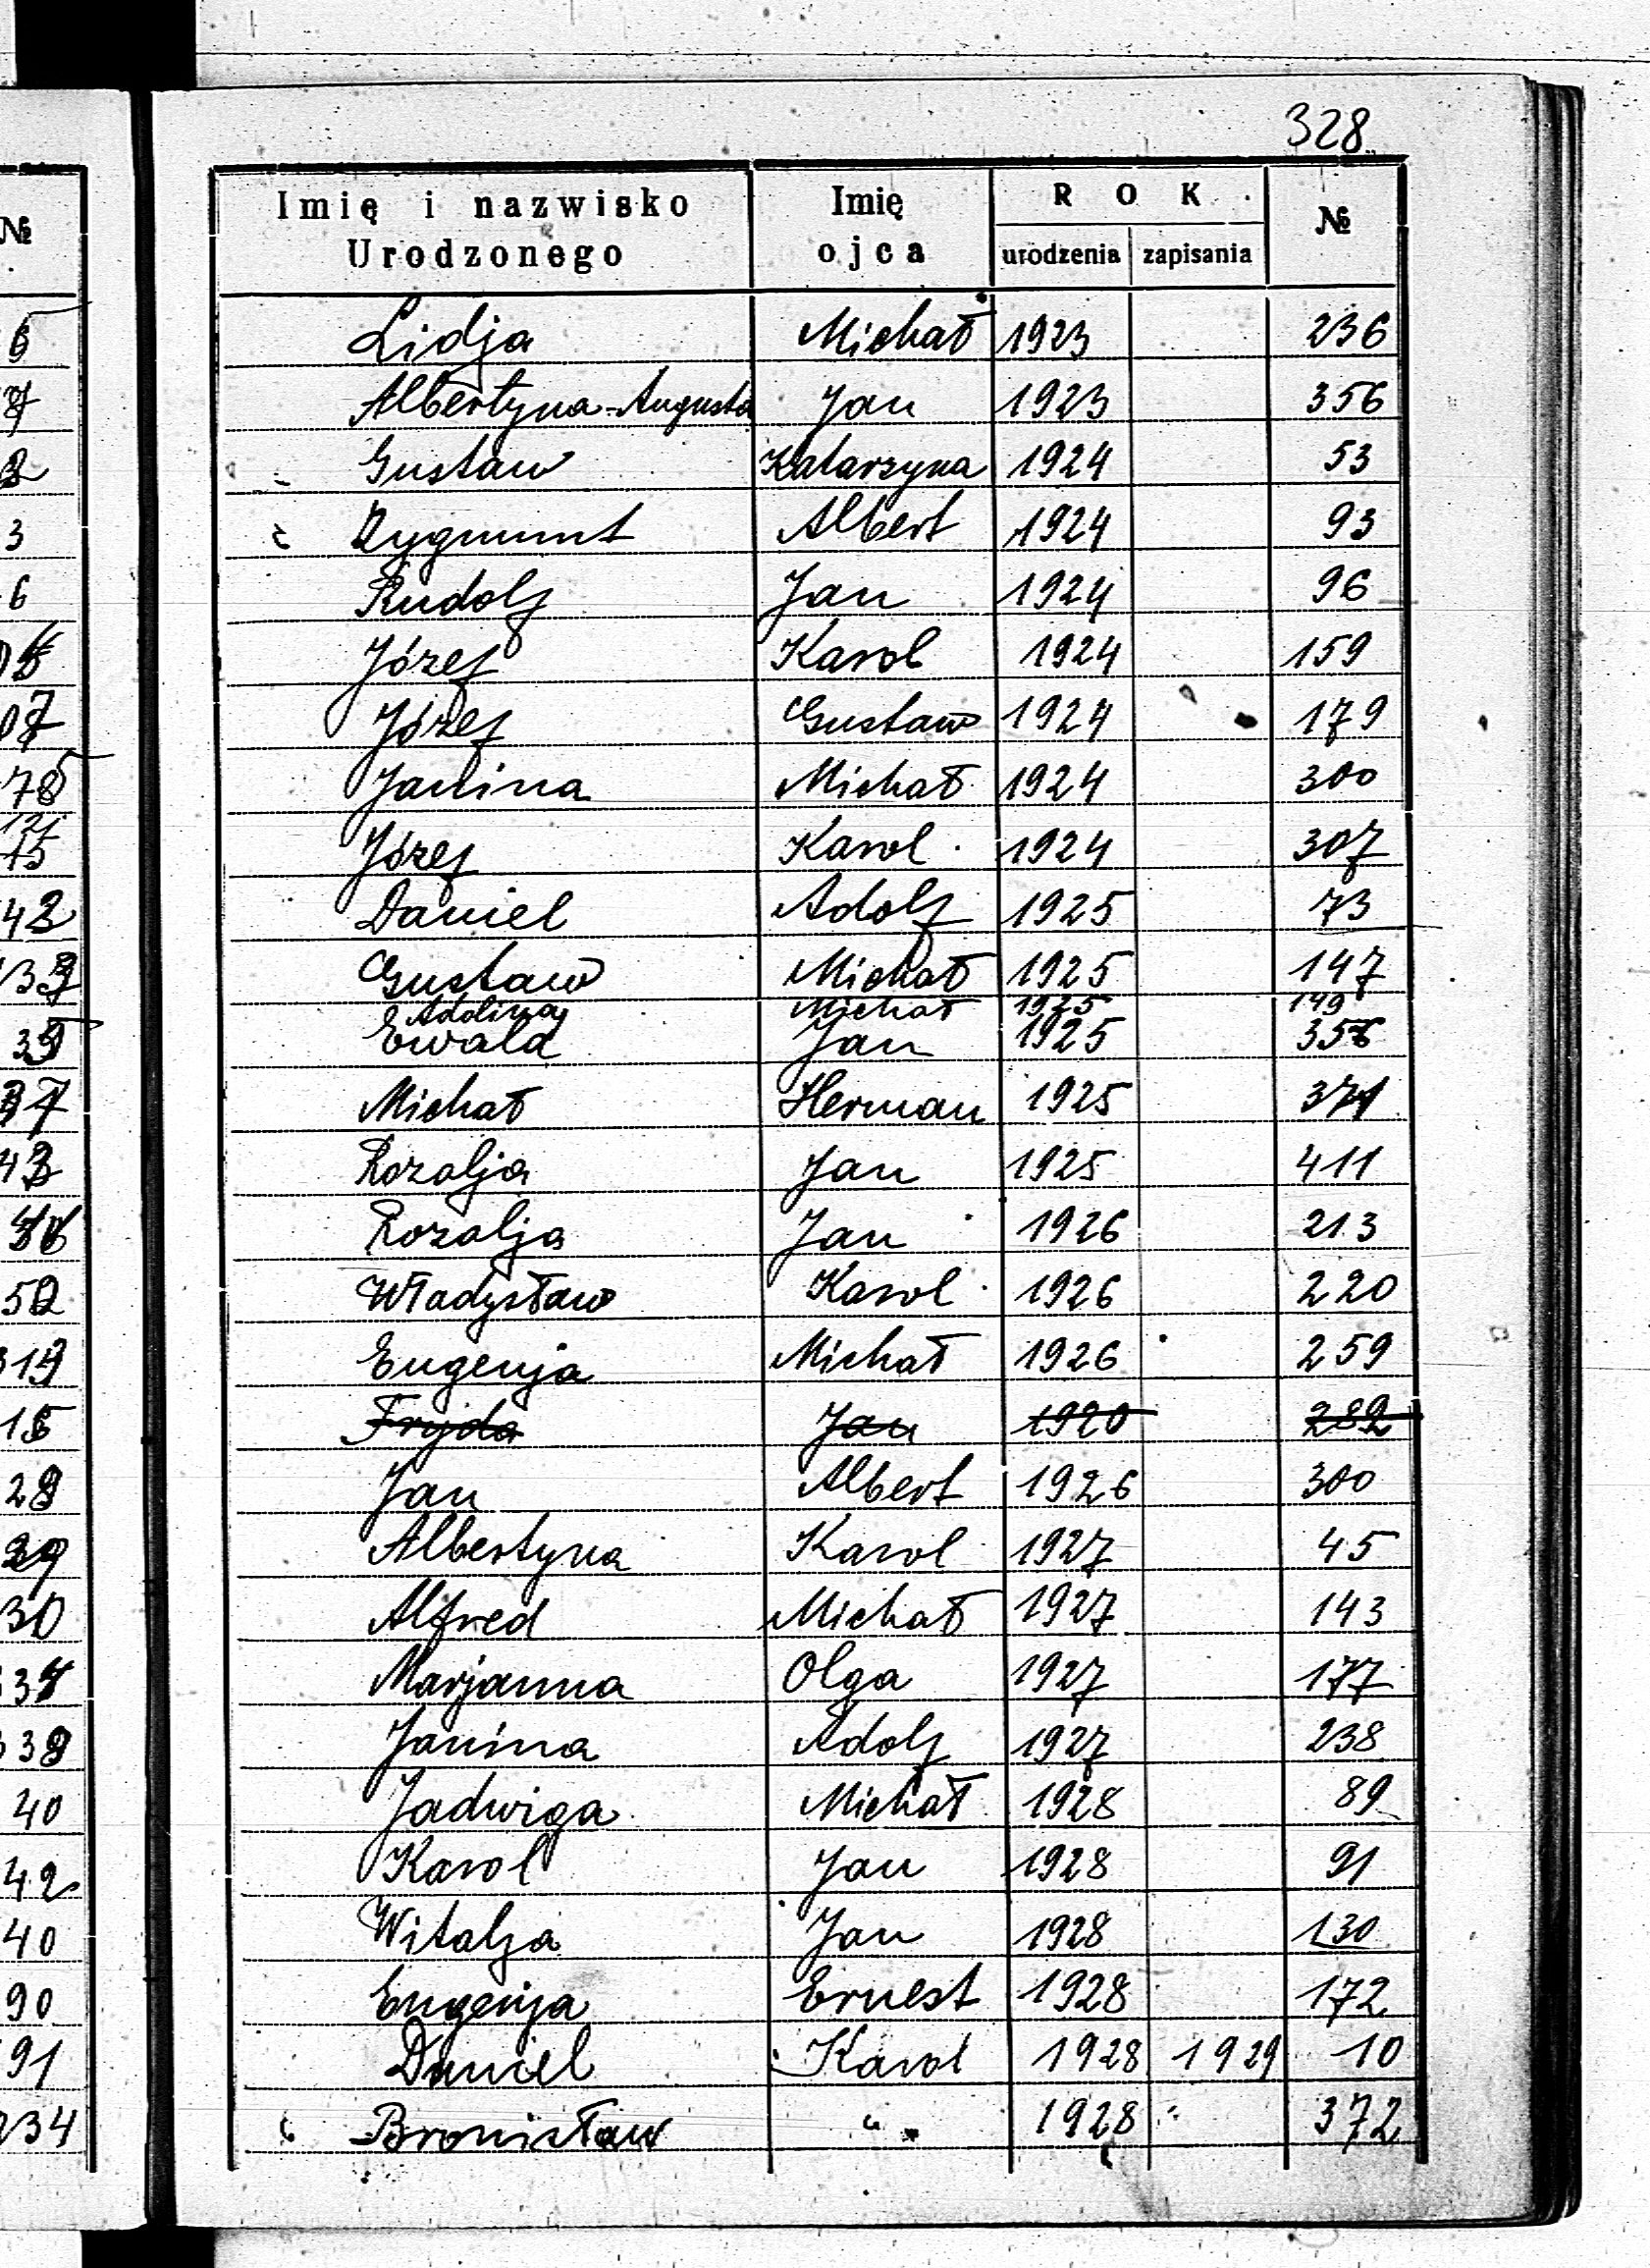 328
Imię i nazwisko Urodzonego Imię ojca ROK urodzenia zapisania №
№
Lidja Michał 1923 236
Albertyna-Augusta Jan 1923 356
Gustaw Katarzyna 1924 53
Zygmunt Albert 1924 93
Rudolf Jan 1924 96
Józef Karol 1924 159
Józef Gustaw 1924 179
Janina Michał 1924 300
Józef Karol 1924 307
Daniel Adolf 1925 73
Gustaw Michał 1925 147
Adolina Michał 1925 149
Ewald Jan 1925 356
Michał Herman 1925 371
Rozalja Jan 1925 411
Rozalja Jan 1926 213
Władysław Karol 1926 220
Eugenja Michał 1926 259
Fryda Jan 1920 282
Jan Albert 1926 300
Albertyna Karol 1927 45
Alfred Michał 1927 143
Marjanna Olga 1927 177
Janina Adolf 1927 238
Jadwiga Michał 1928 89
Karol Jan 1928 91
Witalja Jan 1928 130
Eugenja Ernest 1928 172
Daniel Karol 1928 1929 10
Bronisław " 1928 " 372